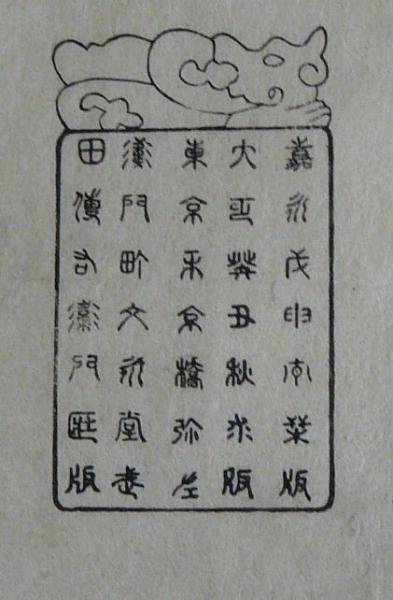 嘉永戊申栞版
大正癸丑秋求版
東京市京橋弥左
衛門町文永堂武
田傳右衛門匨版